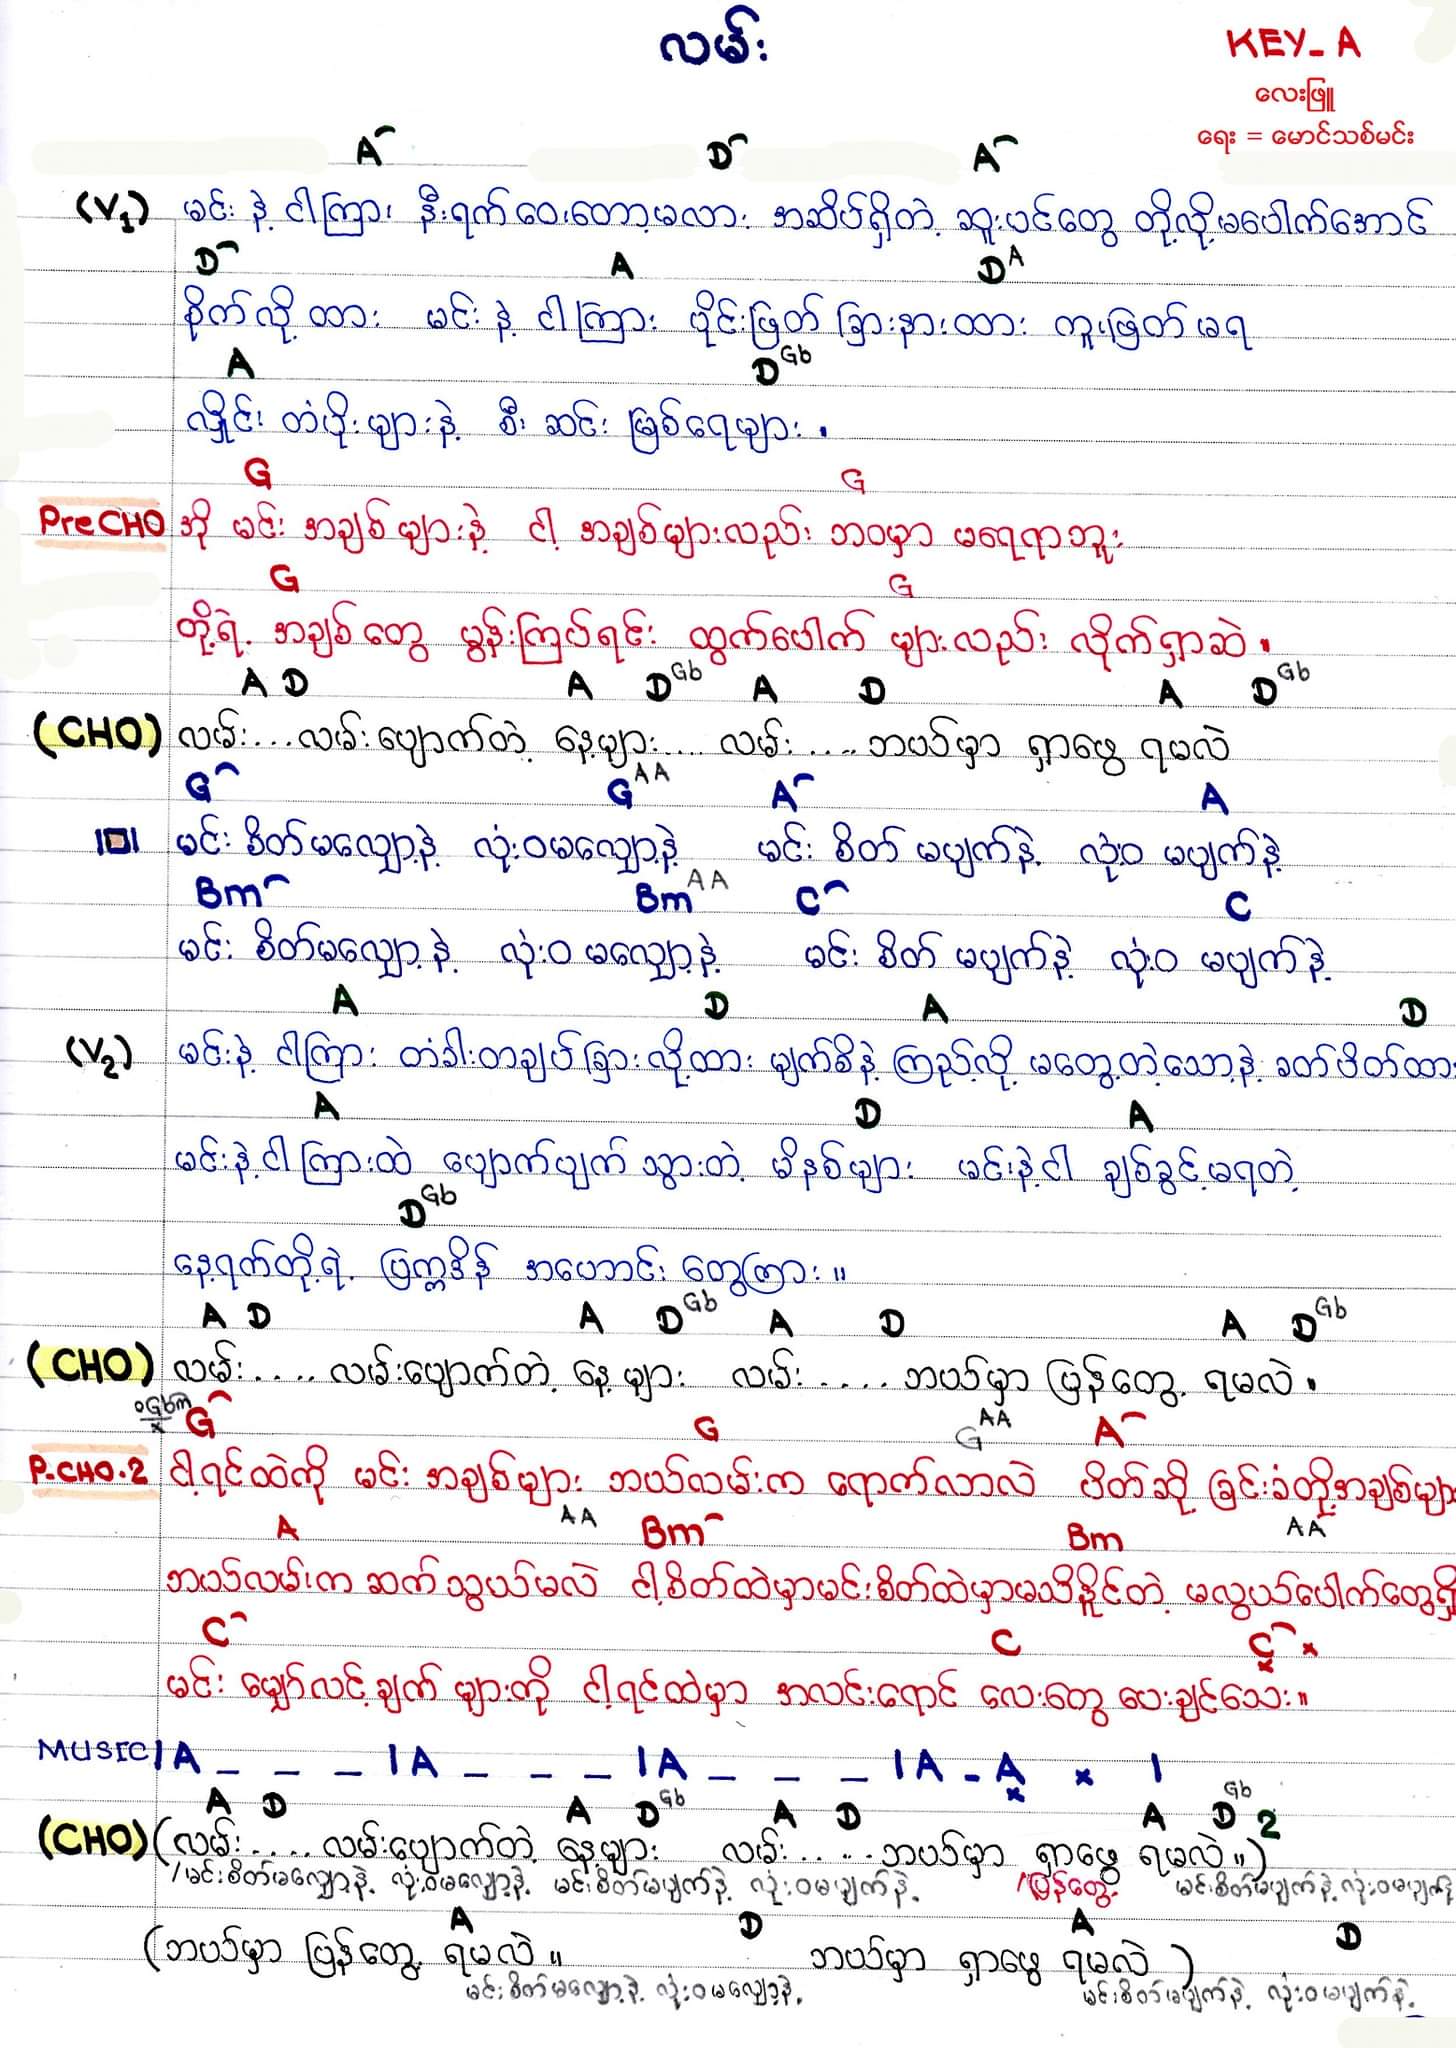 လမ်း
KEY - A
လေးဖြူ
ရေး = မောင်သစ်မင်း
A D A
(V1) မင်း နဲ့ ငါကြား နီးရက်ဝေးတော့မလား အဆိပ်ရှိတဲ့ ဆူးပင်တွေ တို့လို့မပေါက်အောင်
D A D A
စိုက်လို့ ထား မင်း နဲ့ ငါကြား ပိုင်းဖြတ် ခြားနားထား ကူးဖြတ် မရ
A D Gb
လှိုင်း တံပိုး များနဲ့ စီး ဆင်း မြစ်ရေများ .
G G
Pre CHO အို မင်း အချစ် များနဲ့ ငါ့ အချစ်များလည်း ဘဝမှာ မရေရာဘူး
G G
တို့ရဲ့ အချစ်တွေ မွန်းကြပ်ရင်း ထွက်ပေါက် များလည်း လိုက်ရှာဆဲ .
A D A D Gb A D A D Gb
(CHO) လမ်း... လမ်းပျောက်တဲ့ နေ့များ.... လမ်း..... ဘယ်မှာ ရှာဖွေ ရမလဲ
G G A A A A
မင်း စိတ်မလျှော့နဲ့ လုံးဝမလျှော့နဲ့ မင်း စိတ် မပျက်နဲ့ လုံးဝ မပျက်နဲ့
Bm Bm A A C C
မင်း စိတ်မလျှော့နဲ့ လုံးဝ မလျှော့နဲ့ မင်း စိတ် မပျက်နဲ့ လုံးဝ မပျက်နဲ့
A D A D
(V2) မင်းနဲ့ ငါကြား တံခါးတချပ်ခြားလို့ထား မျက်စိနဲ့ ကြည့်လို့ မတွေ့တဲ့သော့နဲ့ ခတ်ပိတ်ထား
A D A
မင်းနဲ့ငါ ကြားထဲ ပျောက်ပျက် သွားတဲ့ မိနစ်များ မင်းနဲ့ငါ ချစ်ခွင့်မရတဲ့
D Gb
နေ့ရက်တို့ရဲ့ ပြက္ခဒိန် အဟောင်းတွေကြား ။
A D A D Gb A D A D Gb
(CHO) လမ်း..... လမ်းပျောက်တဲ့ နေ့များ လမ်း..... ဘယ်မှာ ပြန်တွေ့ ရမလဲ .
Gbm G G G A A A
P.CHO.2 ငါ့ရင်ထဲကို မင်း အချစ်များ ဘယ်လမ်းက ရောက်လာလဲ ပိတ်ဆို့ ခြင်းခံတို့အချစ်များ
A A A Bm Bm A A
ဘယ်လမ်းက ဆက်သွယ်မလဲ ငါ့စိတ်ထဲမှာမင်းစိတ်ထဲမှာမသိနိုင်တဲ့ မလွယ်ပေါက်တွေရှိ
C C C x
မင်း မျှော်လင့်ချက် များကို ငါ့ရင်ထဲမှာ အလင်းရောင် လေးတွေ ပေးချင်သေး။
MUSIC | A _ _ _ | A _ _ _ | A _ _ _ | A - A x |
A D A D Gb A D A D Gb 2
(CHO) (လမ်း..... လမ်းပျောက်တဲ့ နေ့များ လမ်း..... ဘယ်မှာ ရှာဖွေ ရမလဲ။)
/မင်းစိတ်မလျှော့နဲ့ လုံးဝမလျှော့နဲ့ မင်းစိတ်မပျက်နဲ့ လုံးဝမပျက်နဲ့ /ပြန်တွေ့ မင်းစိတ်မပျက်နဲ့ လုံးဝမပျက်နဲ့
A D A D
(ဘယ်မှာ ပြန်တွေ့ ရမလဲ ။ ဘယ်မှာ ရှာဖွေ ရမလဲ )
မင်းစိတ်မလျှော့နဲ့ လုံးဝမလျှော့နဲ့ မင်းစိတ်မပျက်နဲ့ လုံးဝမပျက်နဲ့